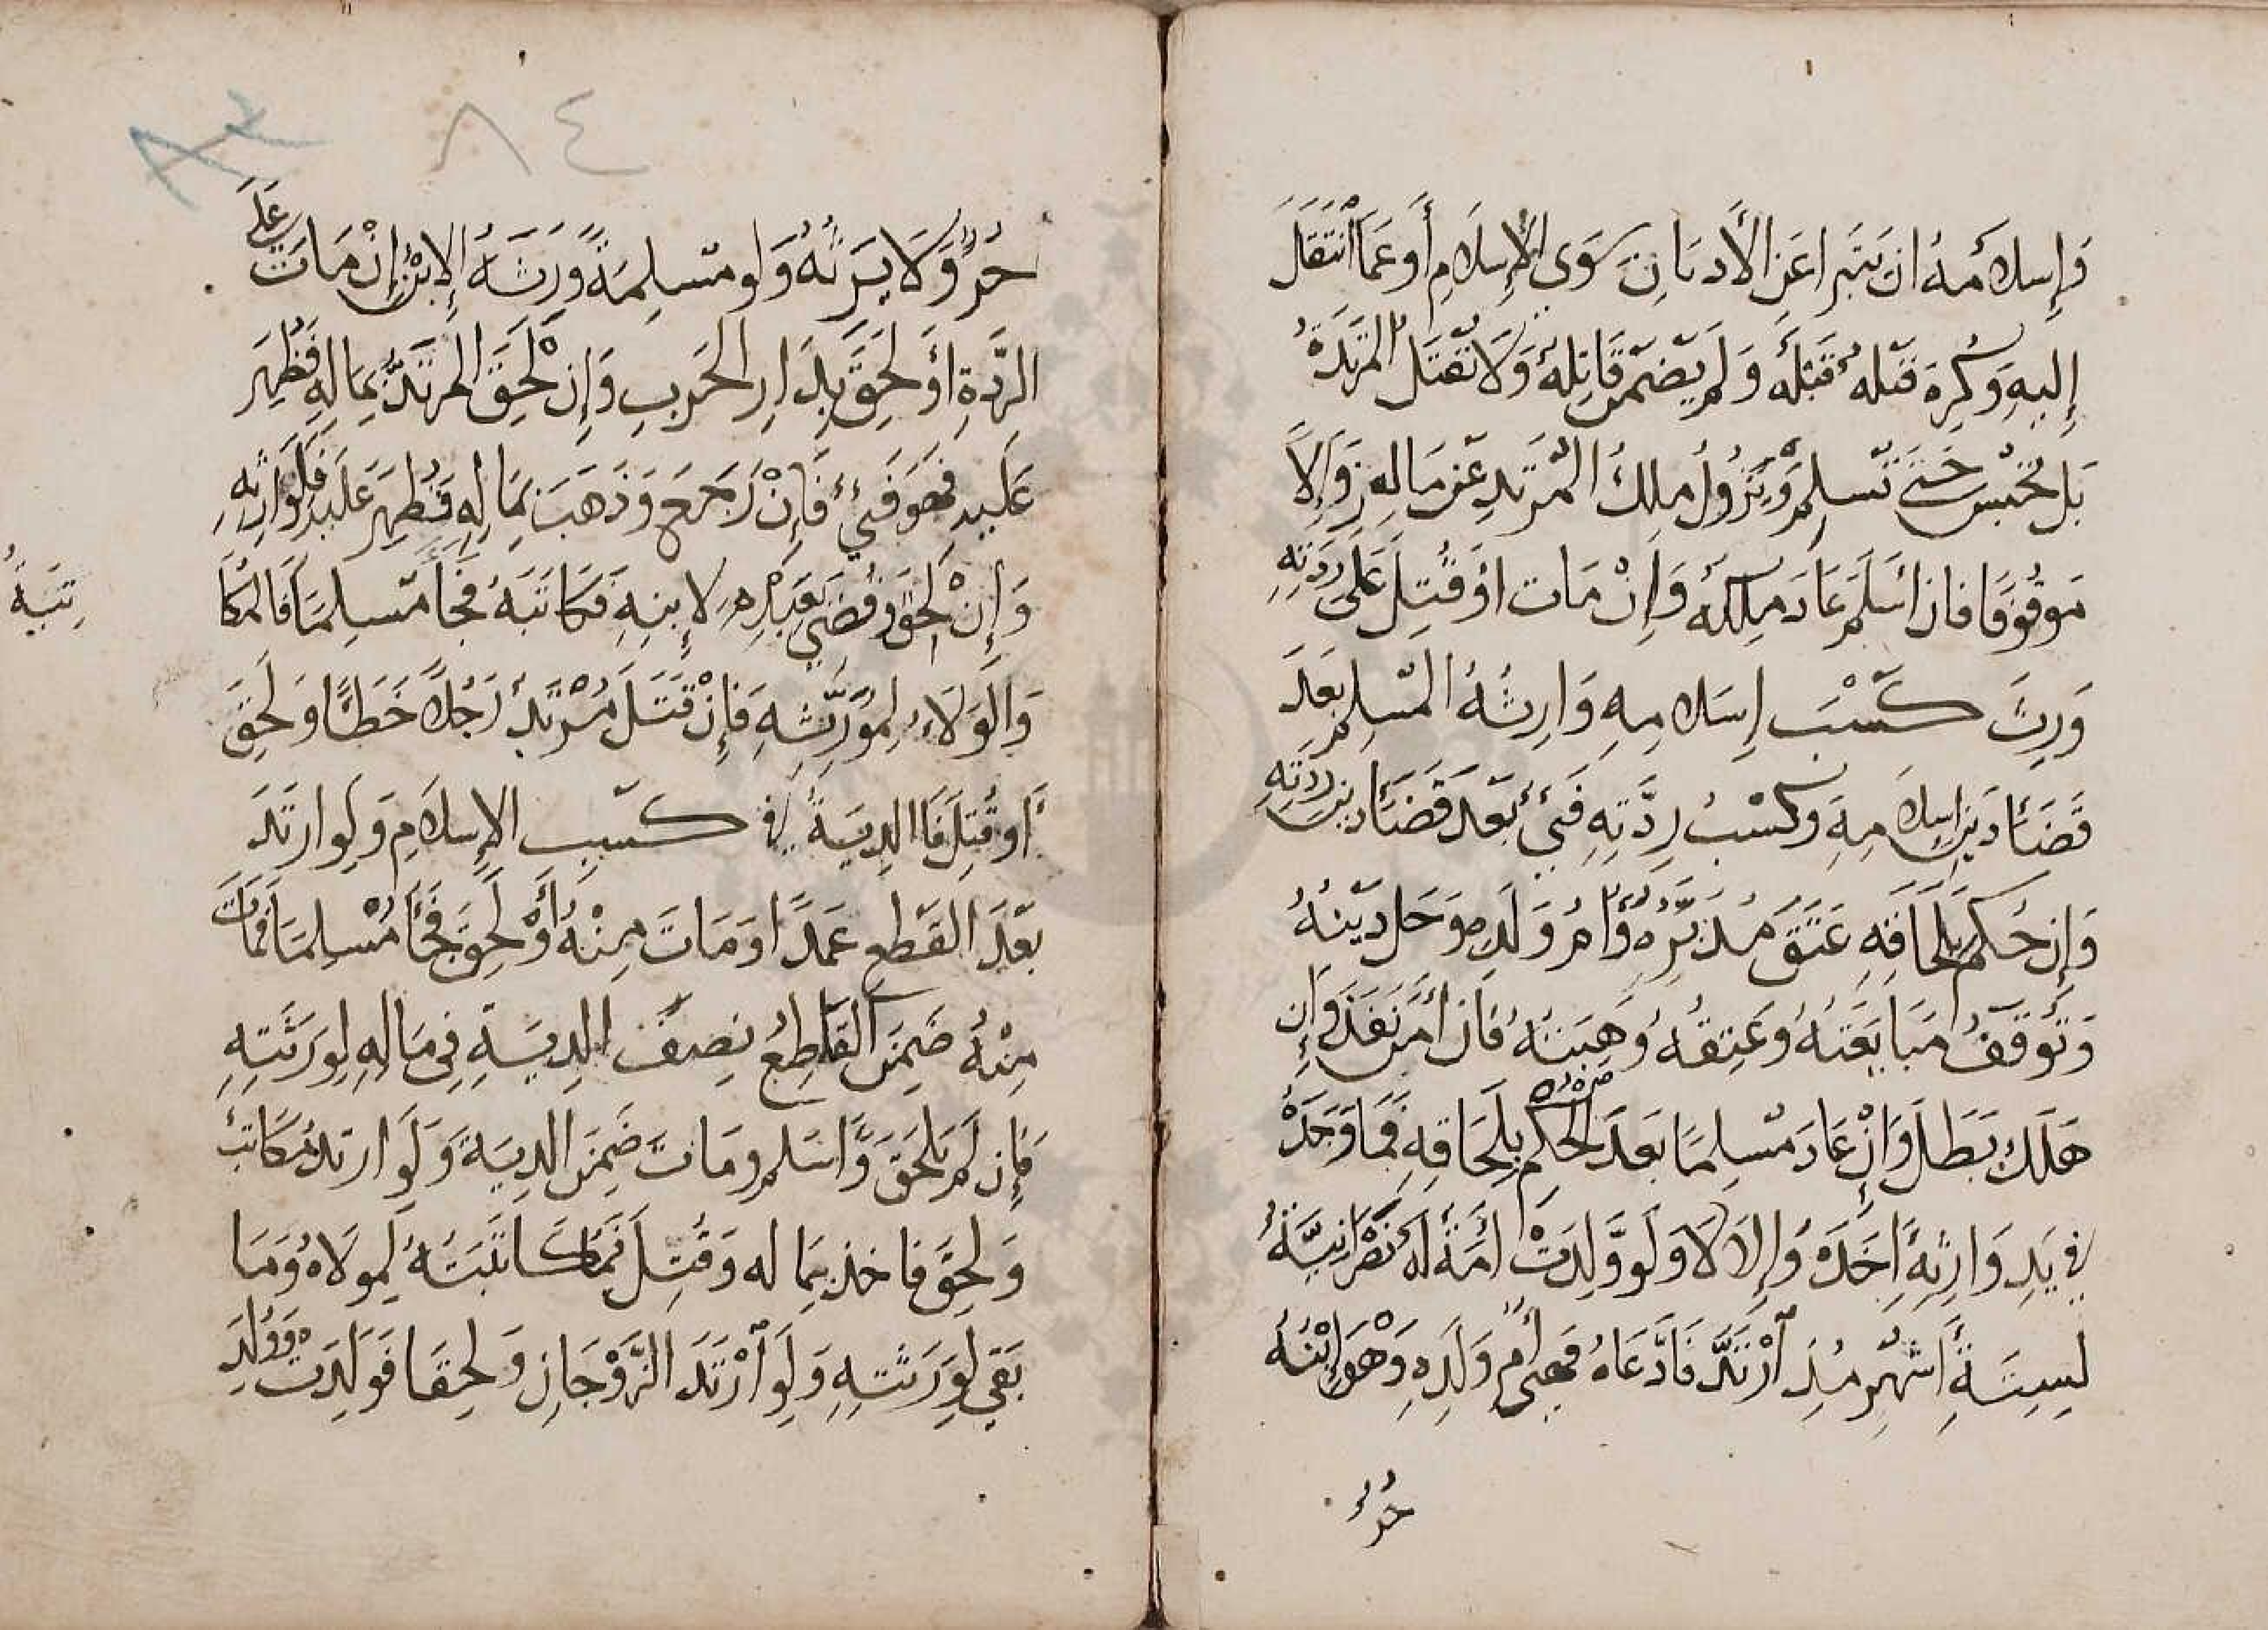 وَإِسلامهُ ان يتبرا عَنِ الأَديَانِ سَوَى الإِسلامِ أَو عَمَّا انْتَقَلَ
إِليهِ وَكُرِهَ قَتله قَبْلَه وَلَم يَضمَن قَاتِلهُ وَلَا تُقتَل المرتدةُ
بَل تُحْبَس حَتَى تسلِم وَيَزُولُ مِلكُ المُرْتَدِ عَن مَالهِ زَوَالاً
مَوقُوفًا فان اَسْلَمَ عَادَ مِلكهُ وَإِنْ مَات اَو قُتِلَ عَلَى رِدَتِهِ
وَرِثَ كَسْبَ إِسلامِهِ وَارِثُهُ المُسلِم بَعْدَ
قَضَاءِ دَينِ اسلامِهِ وَكَسْبُ رِدَّتِهِ فَيْءٌ بَعْدَ قَضَاءِ دينِ رِدَتِهِ
وَإِن حُكم بِلَحَاقِهِ عَتَقَ مُدَبَّرِهِ وَأُمُ وَلَدِهِ وَحَل دَيْنُهُ
وَتَوَقَفُ مُبَايَعَتهُ وَعِتقُهُ وَهِبَتهُ فَان اَمَنَ نَفَذَ وَاِن
هَلَك بَطَلَ وَاِنْ عَادَ مُسلِمًا بَعدَ الحُكم بِلِحَاقِهِ فَمَا وَجَدَهُ
فى يَدِ وَارِثِهِ اَخَذَه وَاِلا لا وَلَو وَلَدَتْ اَمَةٌ لَه نَصْرَانِيَّةٌ
لِسِتَةِ اَشهُرٍ مُذ اَرْتَدَّ فَادَّعَاهُ فَهِيَ أُم وَلَدِهِ وَهْوَ ابْنُهُ
حُرٌ
٨٤
حُرٌ وَلَا يَرثهُ وَلو مُسلِمَةً وَرِثَهُ الإِبْنُ إِنْ مَاتَ عَلَى
الرِّدَةِ اَو لَحِقَ بِدَارِ الحَربِ وَإِن لَحِقَ المرتَدُّ بِمَالِهِ فَظُهِر
عَلَيهِ فَهوَ فَيْءٌ فَإِنْ رَجَعَ وَذَهَبَ بِمَالِهِ فَظُهِرَ عَلَيهِ فَلِوَارِثِهِ
وَإِنْ لَحِقَ وَقُضِيَ بِعَبدِهِ لإِبنِهِ فَكَاتَبَهُ فَجَاَ مُسلِمًا فَالمُكَا
تَبَةُ
وَالوَلاءُ لِمُوَرِّثِهِ فَإِنْ قَتَلَ مُرْتَدٌ رَجُلاً خَطَأً وَلَحِقَ
أَو قُتِلَ فَاالدِيَةُ فى كَسْبِ الإِسلامِ وَلَو ارتَدَ
بَعْدَ القَطعِ عَمدًا وَمَاتَ مِنْهُ أَوْ لَحِقَ فَجَاَ مُسْلِمًا فَمَاتَ
مِنْهُ ضَمِنَ القَاطِعُ نِصفَ الدِيَةِ فِى مَالِهِ لِوَرَثَتِهِ
فَإِن لَم يَلحَق وَاَسلَم وَمَاتَ ضَمِنَ الدِيَةَ وَلَو ارتَدَ مُكَاتَبٌ
وَلَحِقَ فاخذ بِمَا له وَقُتِلَ فَمُكَاتَبَتُهُ لِمولاهُ وَمَا
بَقِيَ لِوَرَثَتِهِ وَلَو اَرْتَدَ الزَّوْجَانِ وَلَحِقَا فَوَلَدَتْ وَوُلِدَ